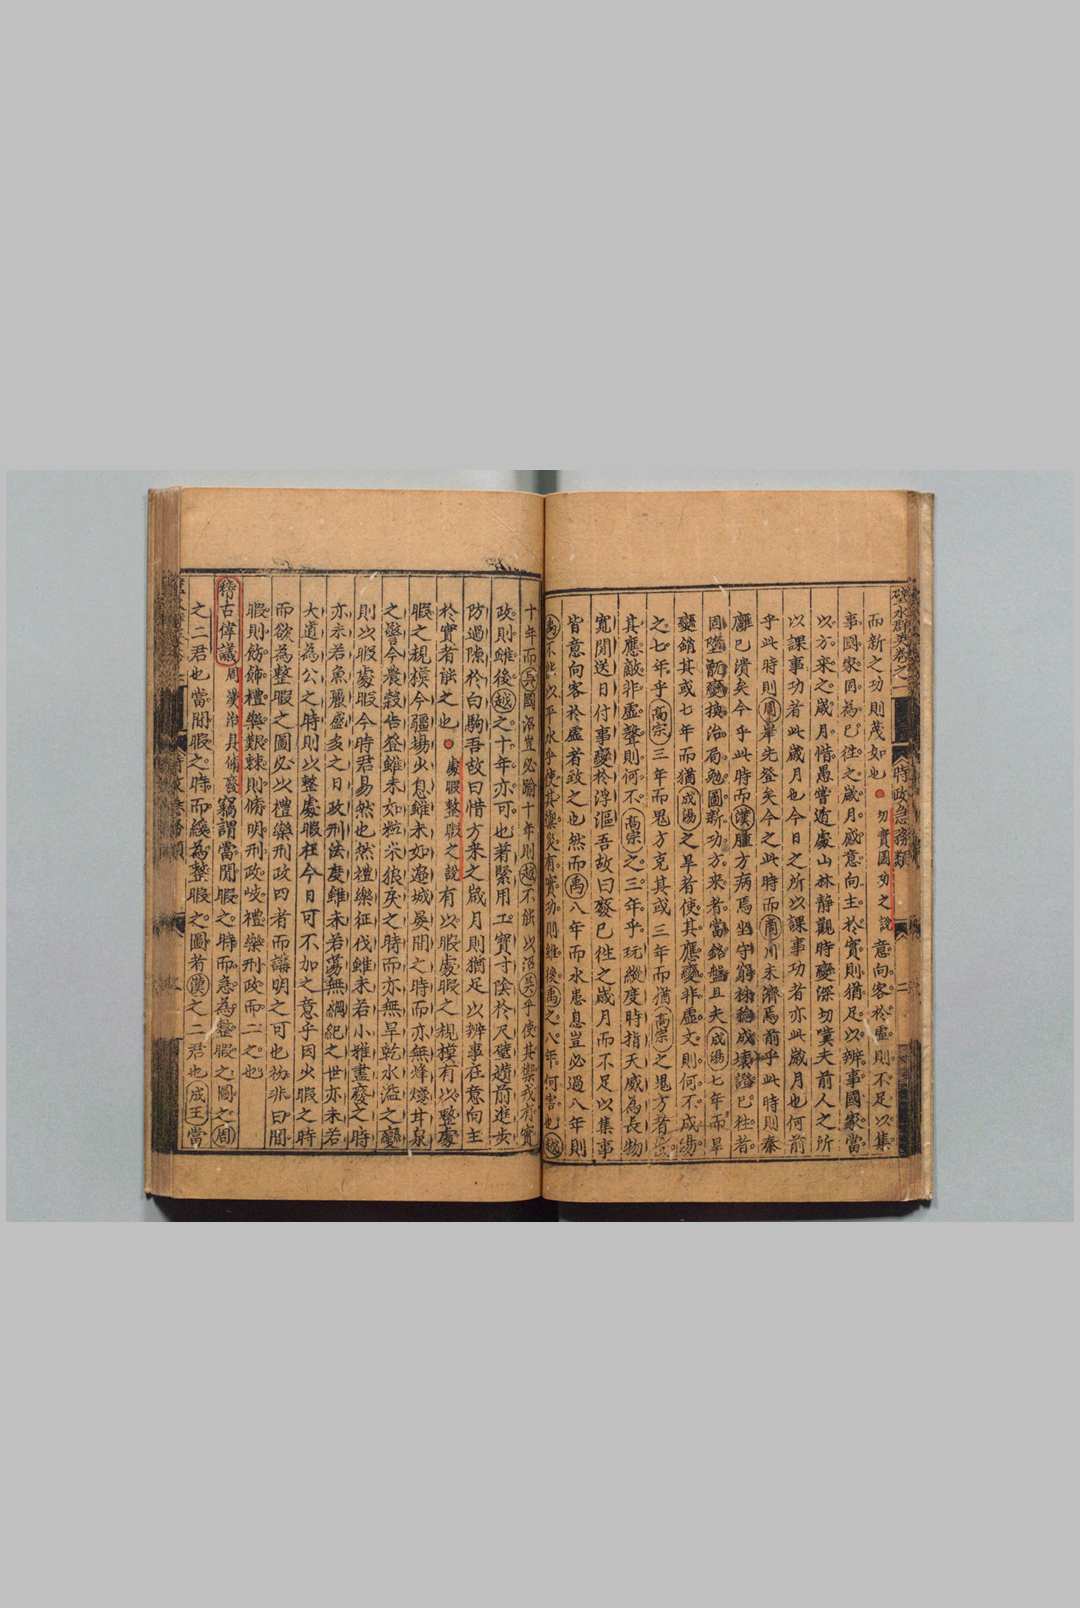 時政急務類
二
而新之功則茂如也 勿實圖功之說 意向客於虛則不足以集
事國家因為已往之歲月感意向主於實則猶足以辨事國家當
以方來之歲月惜愚嘗遁處山林靜觀時變深切嘆夫前人之所
以課事功者此歲月也今日之所以課事功者亦此歲月也何前
乎此時則周畢先登矣今之此時而商川未濟焉前乎此時則秦
癰已潰矣今乎此時而漢腫方病焉坐守窮株成壞證已往者
因墮甑變換治局勉圖新功方來者當銘盤且夫成湯七年而旱
變銷其或七年而猶成湯之旱者使其應變非虛文則何不成湯
之七年乎高宗三年而鬼方克其或三年而猶高宗之鬼方者
其應敵非虛聲則何不高宗之三年乎玩縱度時指天威為長物
寬閒送日付事變於浮漚吾故曰感已往之歲月而不足以集事
皆意向客於虛者致之也然而禹八年而水患息豈必過八年則
禹不此以平水乎使其禦災有實功則雖後禹之八年何害也越
十年而吳國沼豈必踰十年則越不能以沼吳乎使其禦戎有實
政則雖後越之十年亦可也著緊用工寶寸陰於尺璧趲前進步
防過隙於白駒吾故曰惜方來之歲月則猶足以辨事在意向主
於實者能之也 處暇整暇之說 有以暇處暇之規模有以整處
暇之規模今疆埸出息雖未如邊城晏閉之時而亦無烽燧甘泉
之警今農穀告登雖未如粒米狼戾之時而亦無旱乾水溢之變
則以暇處暇今時君易然也然禮樂征伐雖未若小雅盡廢之時
亦未若魚麗盛多之日政刑法度雖未若蕩無綱紀之世亦未若
大道為公之時則以整處暇在今日可不加之意乎因出暇之時
而欲為整暇之圖必以禮樂刑政四者而講明之可也初非曰閒
暇則飭飾禮樂艱棘則脩明刑政岐禮樂刑政而二之也
稽古偉議 周漢治具脩廢 竊謂當閒暇之時而急為整暇之圖者周
之二君也當閒暇之時而緩為整暇之圖者漢之二君也成王當